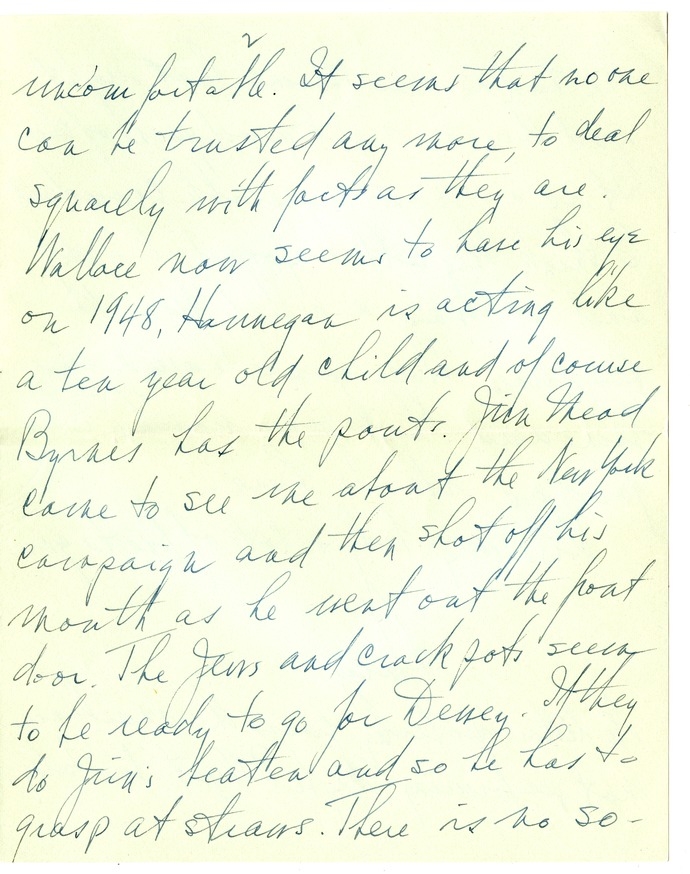 2
uncomfortable. It seems that no one
can be trusted any more, to deal
squarely with facts as they are.
Wallace now seems to have his eye
on 1948, Hannegan is acting like
a ten year old child and of course
Byrnes has the pouts. Jim Mead
came to see me about the New York
campaign and then shot off his
mouth as he went out the front
door. The Jews and crack pots seem
to be ready to go for Dewey. If they
do Jim's beaten and so he has to
grasp at straws. There is no so-